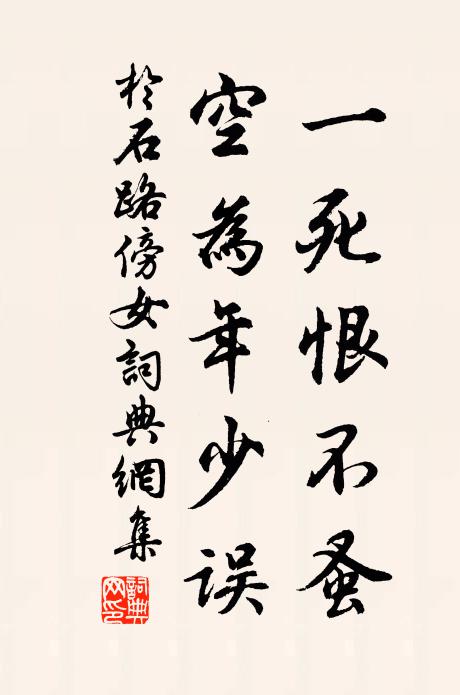 一死恨不蚤
空為年少誤
於石路傍女詞典網集
詞典網印